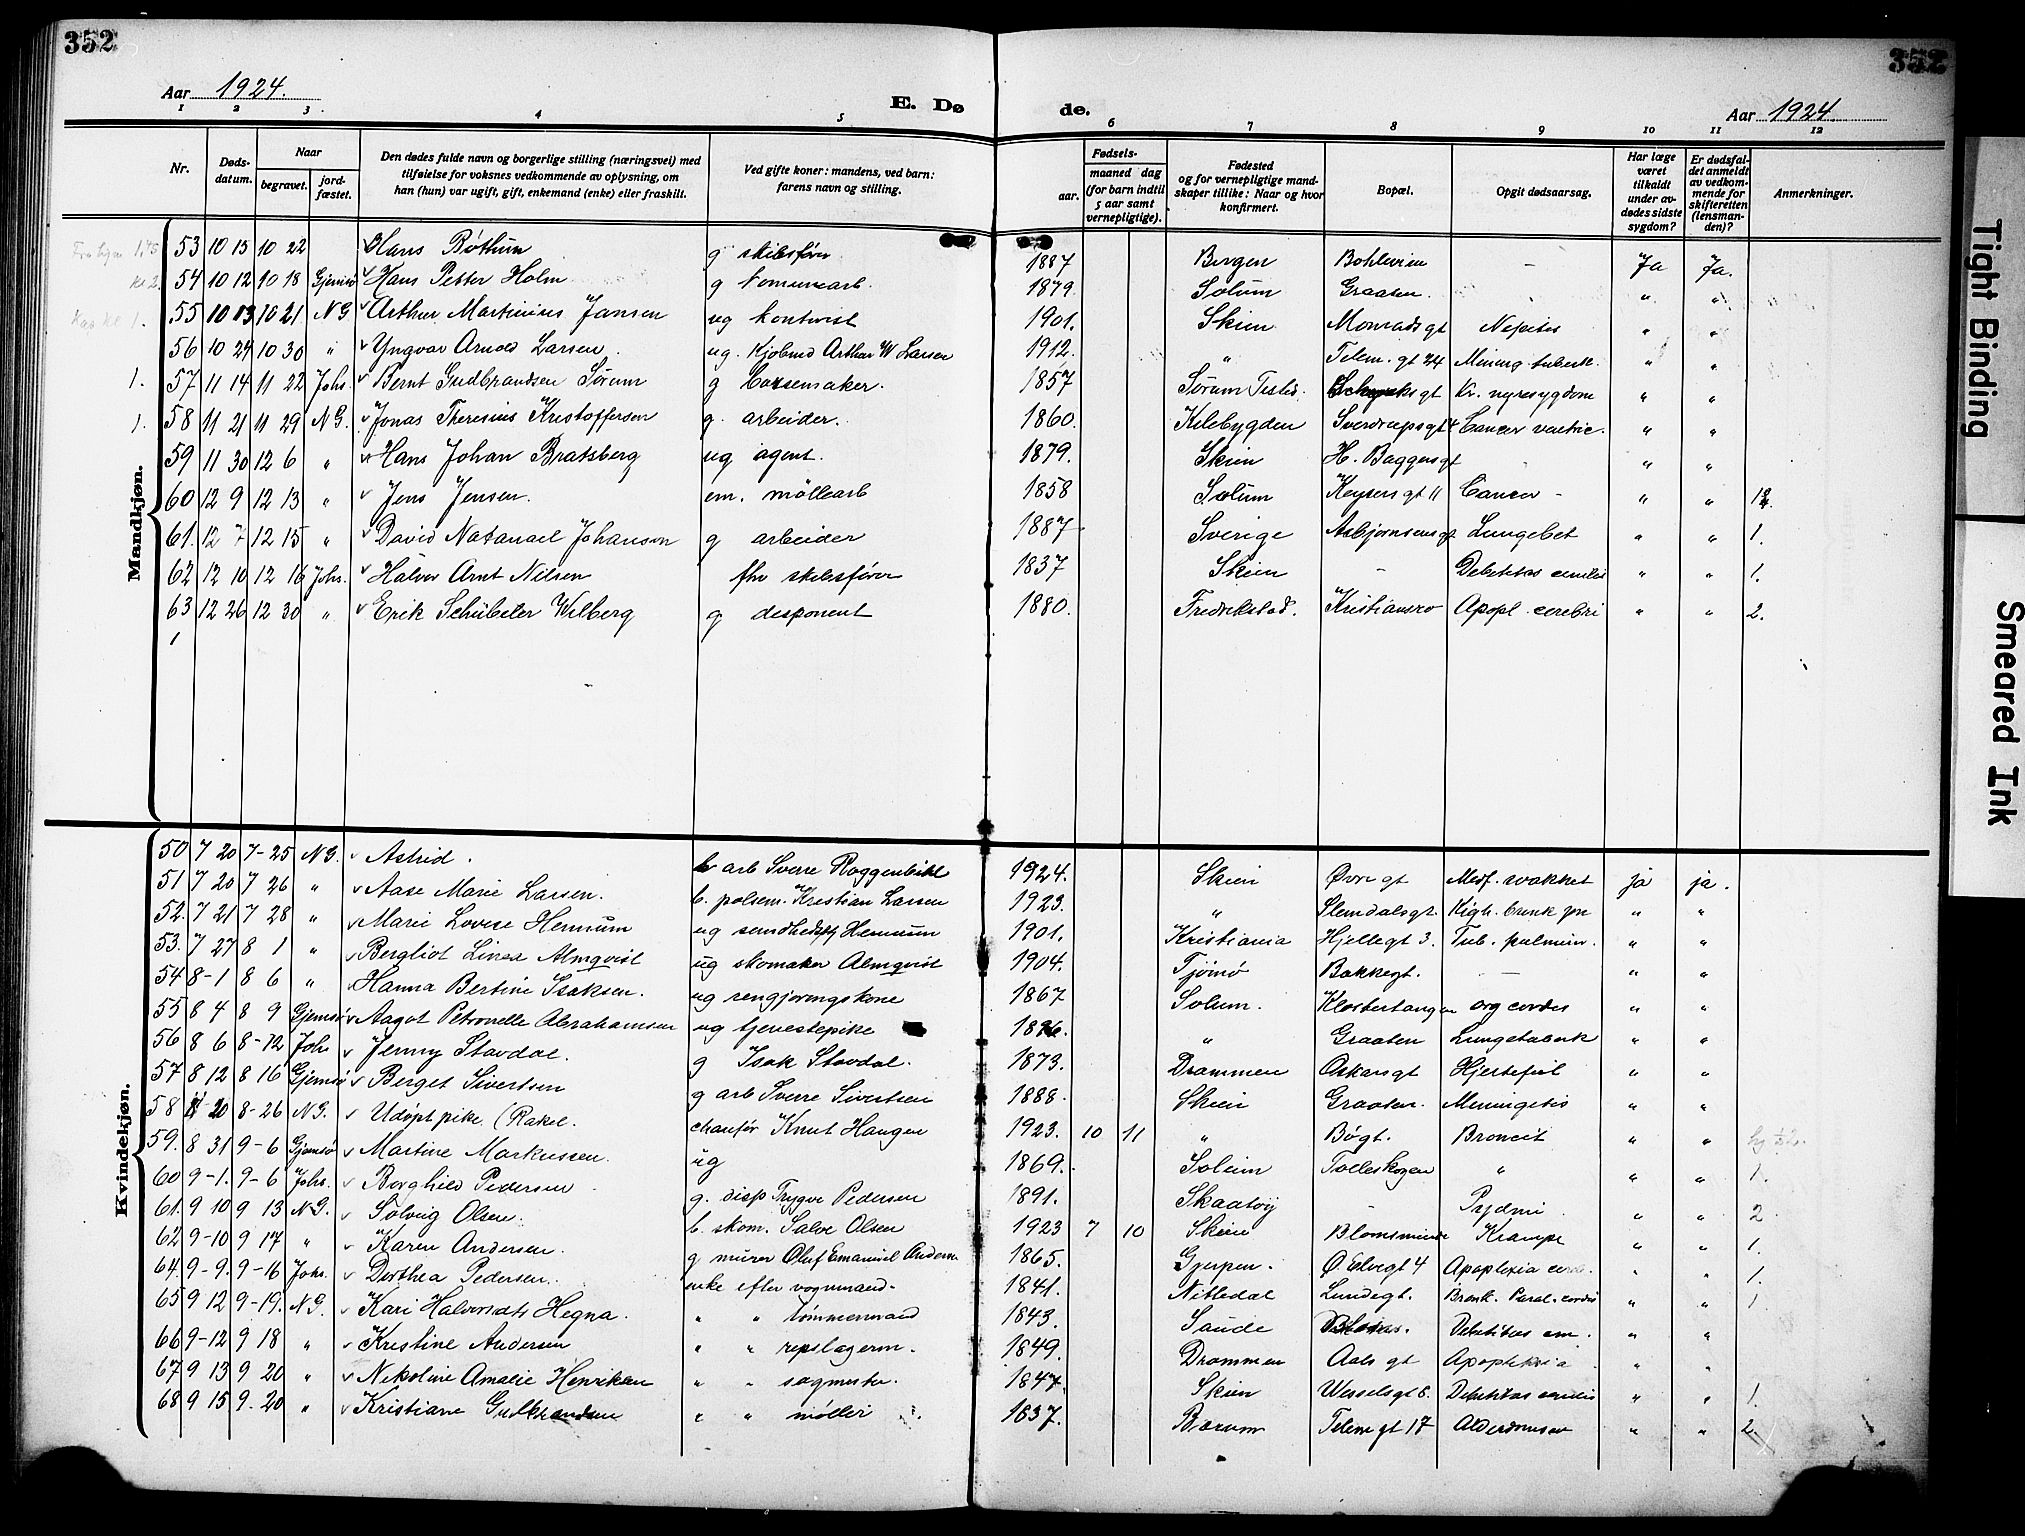 352
352
Aar 1924.
E. Dø
de.
Aar 1924
1 2 3 4 5 6 7 8 9 10 11 12
Nr.
Døds-datum.
Naar
begravet.
jord-fæstet.
Den dødes fulde navn og borgerlige stilling (næringsvei) med tilføielse for voksnes vedkommende av oplysning, om han (hun) var ugift, gift, enkemand (enke) eller fraskilt.
Ved gifte koner: mandens, ved barn: farens navn og stilling.
Fødsels-
aar.
maaned dag
(for barn indtil 5 aar samt vernepligtige).
Fødested og for vernepligtige mandskaper tillike: Naar og hvor konfirmert.
Bopæl.
Opgit dødsaarsag.
Har læge været tilkaldt under av-dødes sidste sygdom?
Er dødsfal-det anmeldt av vedkom-mende for skifteretten (lensman-den)?
Anmerkninger.
Mandkjøn.
53 10 15 10 22 Hans Bøthun g skibsfører 1887 Bergen – Ja Ja.
54 10 12 10 18 Gjemsø Hans Petter Holm g komunearb. 1879 Solum Graaten. - " "
55 10 13 10 21 N G Arthur Martinius Jansen ug kontorist 1901. Skien Monradsgt Nefritis " "
56 10 24 10 30 " Yngvar Arnold Larsen ug. Kjøbmd Arthur W Larsen 1912. " Telem. gt 24 Mening. tuberk. " "
1. 57 11 14 11 22 Johs. Bernt Gudbrandsen Sørum g børsemaker. 1857 Kr. nyresygdom " "
1. 58 11 21 11 29 N G. Jonas Theresius Kristoffersen g. arbeider. 1860. Kilebygden Sverdrupsgt 4 Cancer ventric. " "
59 11 30 12 6 " Hans Johan Bratsberg ug agent. 1879. Skien H. Baggersgt - " "
60 12 9 12 13 " Jens Jensen. em. møllearb 1858 Solum Keysersgt 11 Cancer - " "
61. 12 7 12 15 " David Natanael Johanson g arbeider 1887 Sverige Asbjørnsensgt Lungebet " " 1.
62 12 10 12 16 Johs. Halvor Arnt Nilsen fhv skibsfører 1837 Skien - Debilitas senilis " " 1.
63 12 26 12 30 " Erik Schübeler Wilberg g disponent 1880. Fredrikstad. Kristiansro Apopl. cerebri " " 2.
Kvindekjøn.
50 7 20 7-25 N G. Astrid. b arb Sverre Roggenbikl 1924. Skien Øvre gt Medf. svakhet ja ja.
51 7 20 7 26 " Aase Marie Larsen. b. polsem. Kristian Larsen 1923. " Slemdalsgt. Kigh. bronk pn " "
52. 7 21 7 28 " Marie Lovise Hennum ug Hennum 1901. Kristiania Hjellegt 3. Tub. pulmon. " "
53. 7 27 8 1 " Bergliot Linea Almqvist ug skomaker Almqvist 1904. Tjømø Bakkegt. — " "
54 8-1 8 6 " Hanna Bertine Isaksen. ug rengjøringskone 1867 Solum. Klostertangen org cordis " "
55 8 4 8 9 Gjemsø Aagot Petronelle Abrahamsen ug tjenestepike " Graaten Lungetuberk " "
56 8 6 8-12 Joh Jenny Stavdal. g Isak Stavdal. 1873. Drammen Oskarsgt Hjertefeil " "
57 8 12 8 16 Gjemsø Berget Sivertsen g arb Sverre Sivertsen 1888. Skien Graaten. Meningitis " "
58 20 8-26 N G. Udøpt pike. (Rakel. chaufør Knut Haugen 1923. 10 11 " Bøgt. Broncit " "
59. 8 31 9-6 Gjemsø Martine Markussen. ug 1869. Solum Tolleskogen " " " 1.
60 9-1. 9-6 Johs. Borghild Pedersen g. disp Trygve Pedersen 1891. Skaatøy - " " 2
61. 9 10 9 13 N G. Solveig Olsen. b. skom. Salve Olsen 1923 7 10 Skien Krampe " " 1.
62 9-10 9 17 " Karen Andersen. g murer Oluf Emanuel Anderse 1865. Gjerpen. Ø. Elvegt 4 Apoplexia cereb. " " 1.
64. 9-9. 9-16 Johs. Dorthea Pedersen. enke efter vognmand. 1841. Nittedal Lundegt. Bronk. Paral. cordis " " 1
65 9 12 9-19. N G. Kari Halvorsdtr Hegna. " " tømmermand 1843. Saude Debilitas sen. " "
66 9-12 9 18 " Kristine Andersen " " repslagerm. 1849. Drammen Aalsgt Apopleksia " "
67 9 13 9 20 " Nikoline Amalie Henriksen " " sagmester 1847. Skien Wesselsgt 8. Debilitas senilis " " 1.
68 9 15 9. 20 " Kristiane Gudbrandsen " " møller 1837. Bærum Telem gt 17 Alderdomssv " " 2.
Tight Binding
Smeared Ink